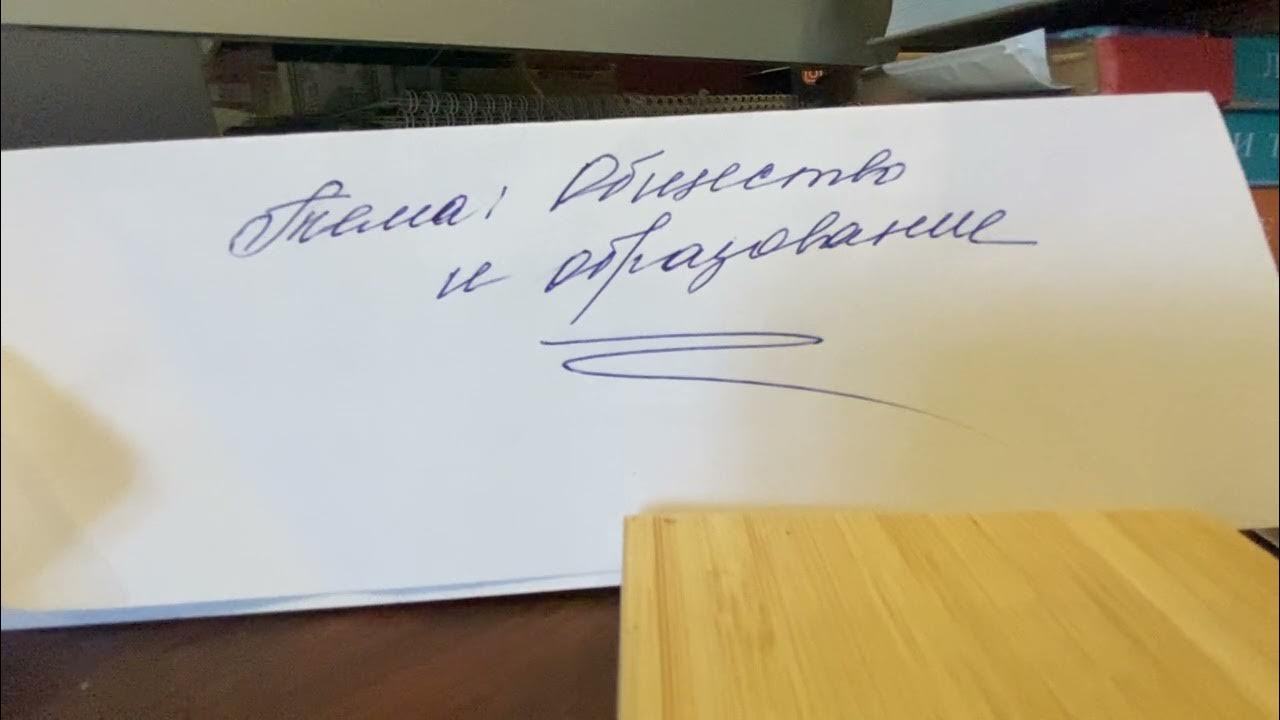 Тема: Общество
и образование